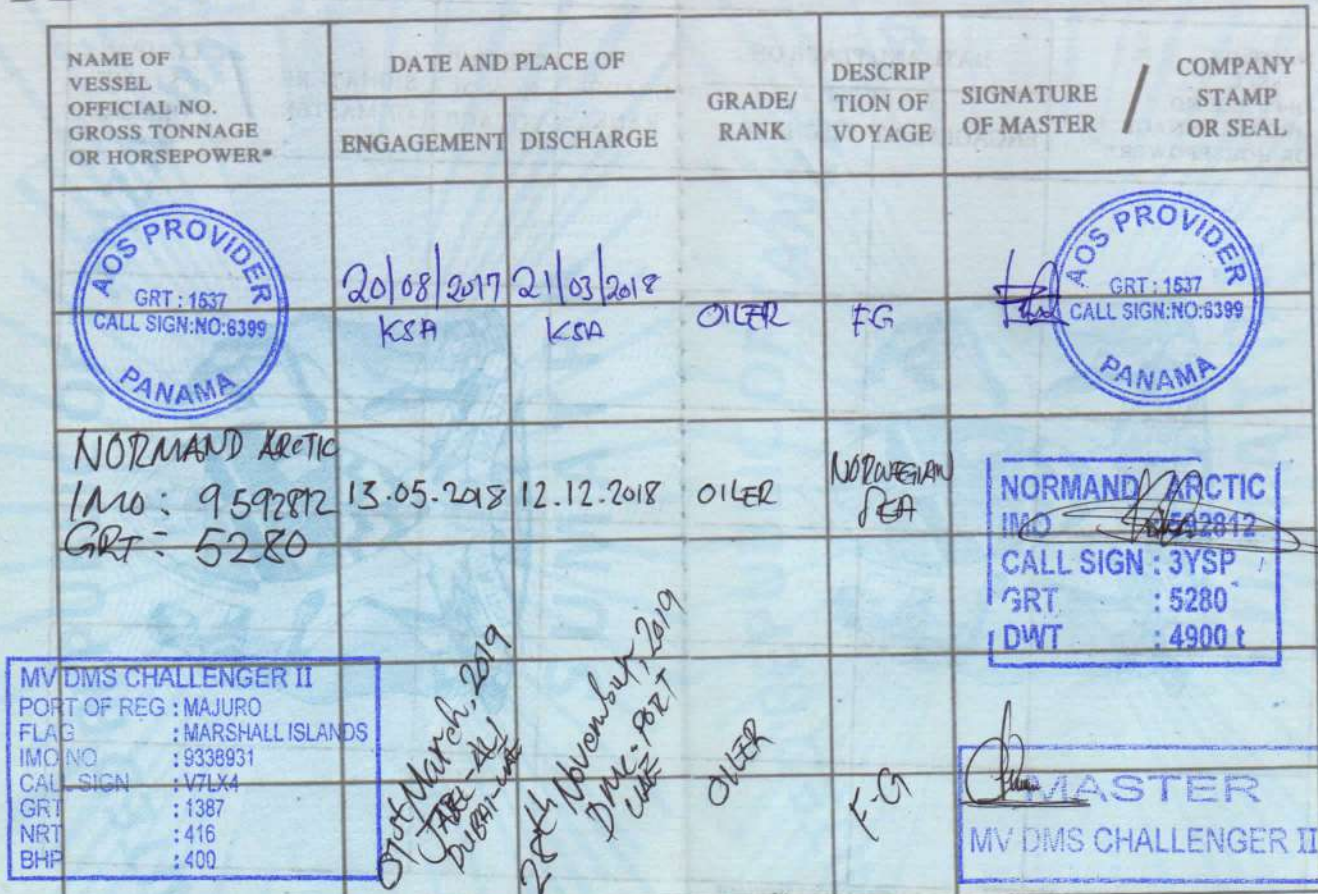 NAME OF
VESSEL
OFFICIAL NO.
GROSS TONNAGE
OR HORSEPOWER*
DATE AND PLACE OF
ENGAGEMENT
DISCHARGE
GRADE/
RANK
DESCRIP
TION OF
VOYAGE
SIGNATURE
OF MASTER
/
COMPANY
STAMP
OR SEAL
AOS PROVIDER
GRT : 1537
CALL SIGN:NO:6399
PANAMA
20/08/2017
KSA
21/03/2018
KSA
OILER
FG
AOS PROVIDER
GRT : 1537
CALL SIGN:NO:6399
PANAMA
NORMAND ARCTIC
IMO : 9592812
GRT : 5280
13.05.2018
12.12.2018
OILER
NORWEGIAN
SEA
NORMAND ARCTIC
IMO 9592812
CALL SIGN : 3YSP
GRT : 5280
DWT : 4900 t
MV DMS CHALLENGER II
PORT OF REG : MAJURO
FLAG : MARSHALL ISLANDS
IMO NO : 9338931
CALL SIGN : V7LX4
GRT : 1387
NRT : 416
BHP : 400
March, 2019
JABEL-ALI
DUBAI-UAE
28th November, 2019
DMC-PORT
UAE
OILER
F-G
MASTER
MV DMS CHALLENGER II